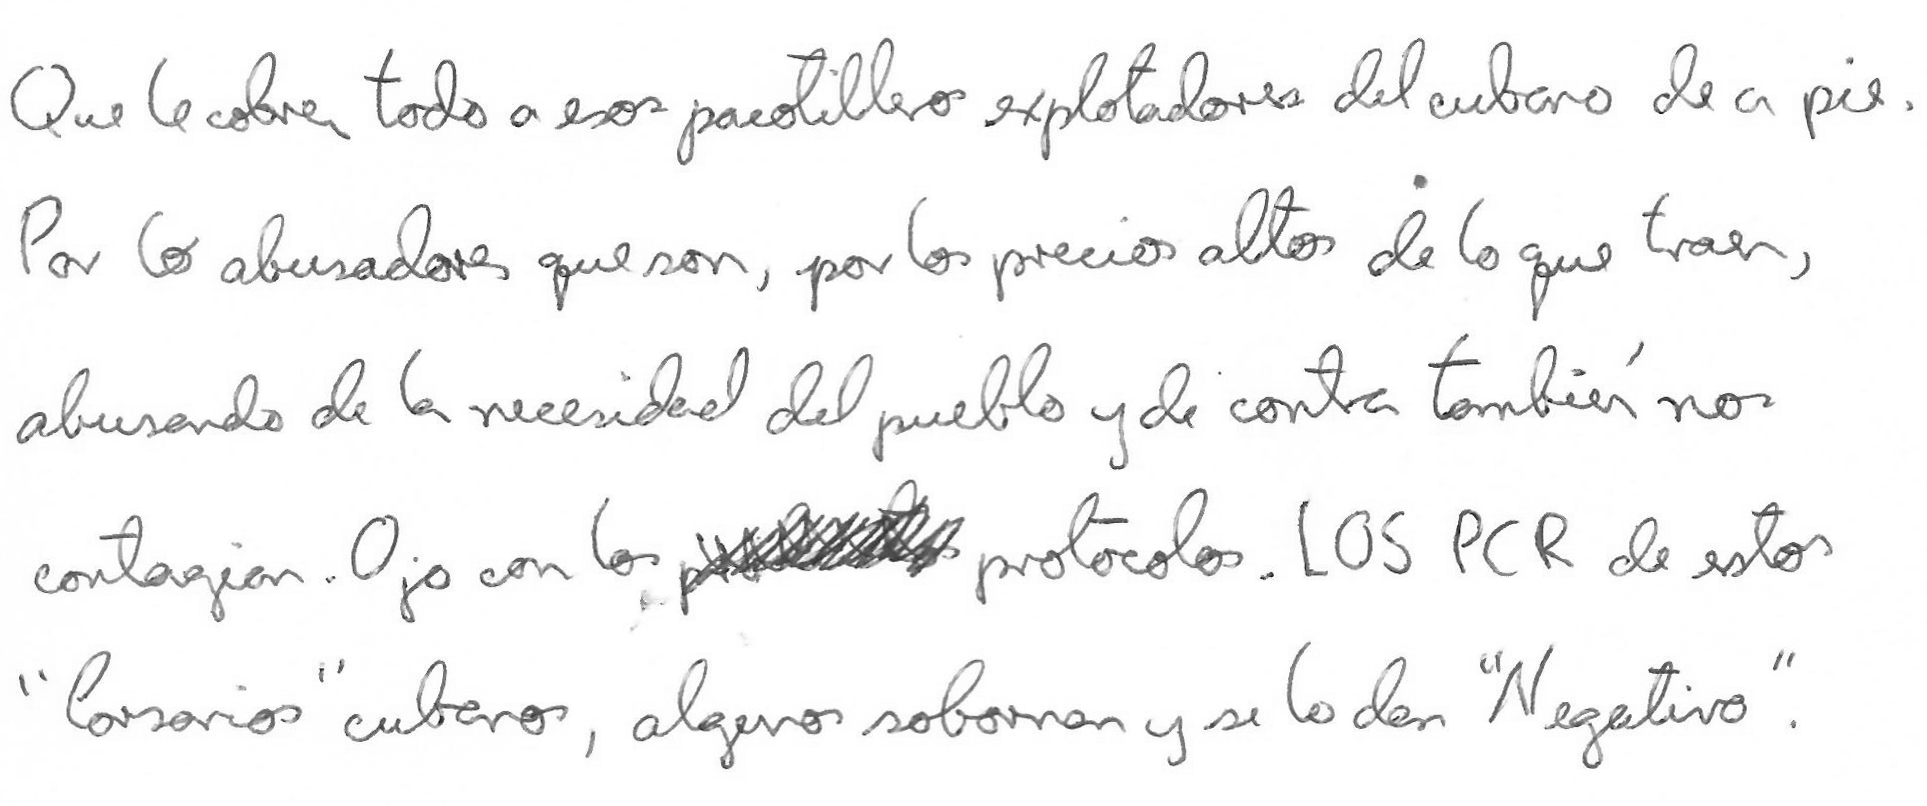 Que le cobren todo a esos pacotilleros explotadores del cubano de a pie.
Por lo abusadores que son, por los precios altos de lo que traen,
abusando de la necesidad del pueblo y de contra también nos
contagian. Ojo con los protocolos. LOS PCR de estos
"Corsarios" cubanos, algunos sobornan y se lo dan "Negativo".